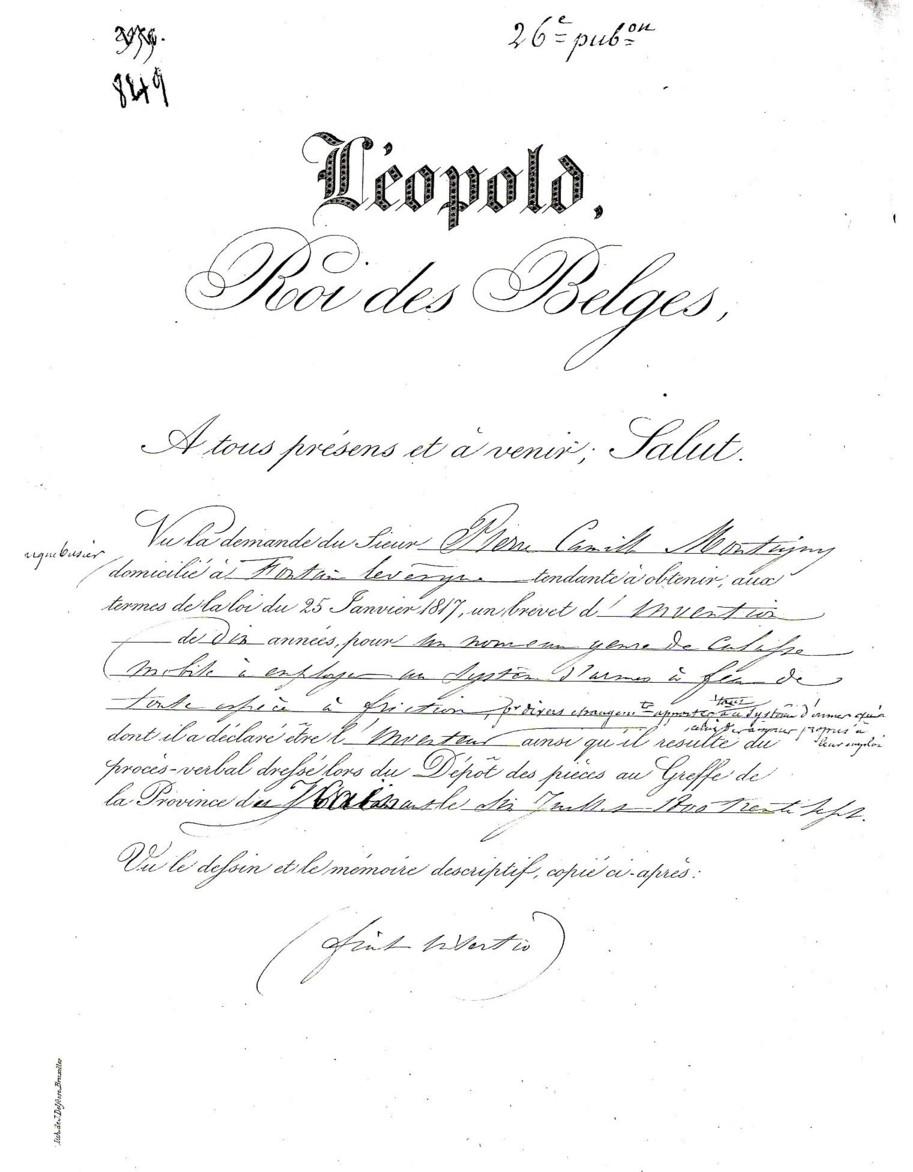 26e pubon
8849
Léopold,
Roi des Belges,
A tous présens et à venir; Salut.
Vu la demande du Sieur Pierre Camille Montigny
arquebusier
domicilié à Fontaine levêque tendante à obtenir, aux
termes de la loi du 25 Janvier 1817, un brevet d'invention
de dix années, pour un nouveau genre de culasse
mobile à employer au système d'armes à feu de
toute espèce à friction, pr divers changemts apportés au système d'armes
propres à
leur emploi
dont il a déclaré être l'inventeur ainsi qu'il resulte du
procès-verbal dressé lors du Dépôt des pièces au Greffe de
la Province du Hainaut le six Juillet 1800 trente sept.
Vu le dessin et le mémoire descriptif, copié ci-après:
(fiat insertio)